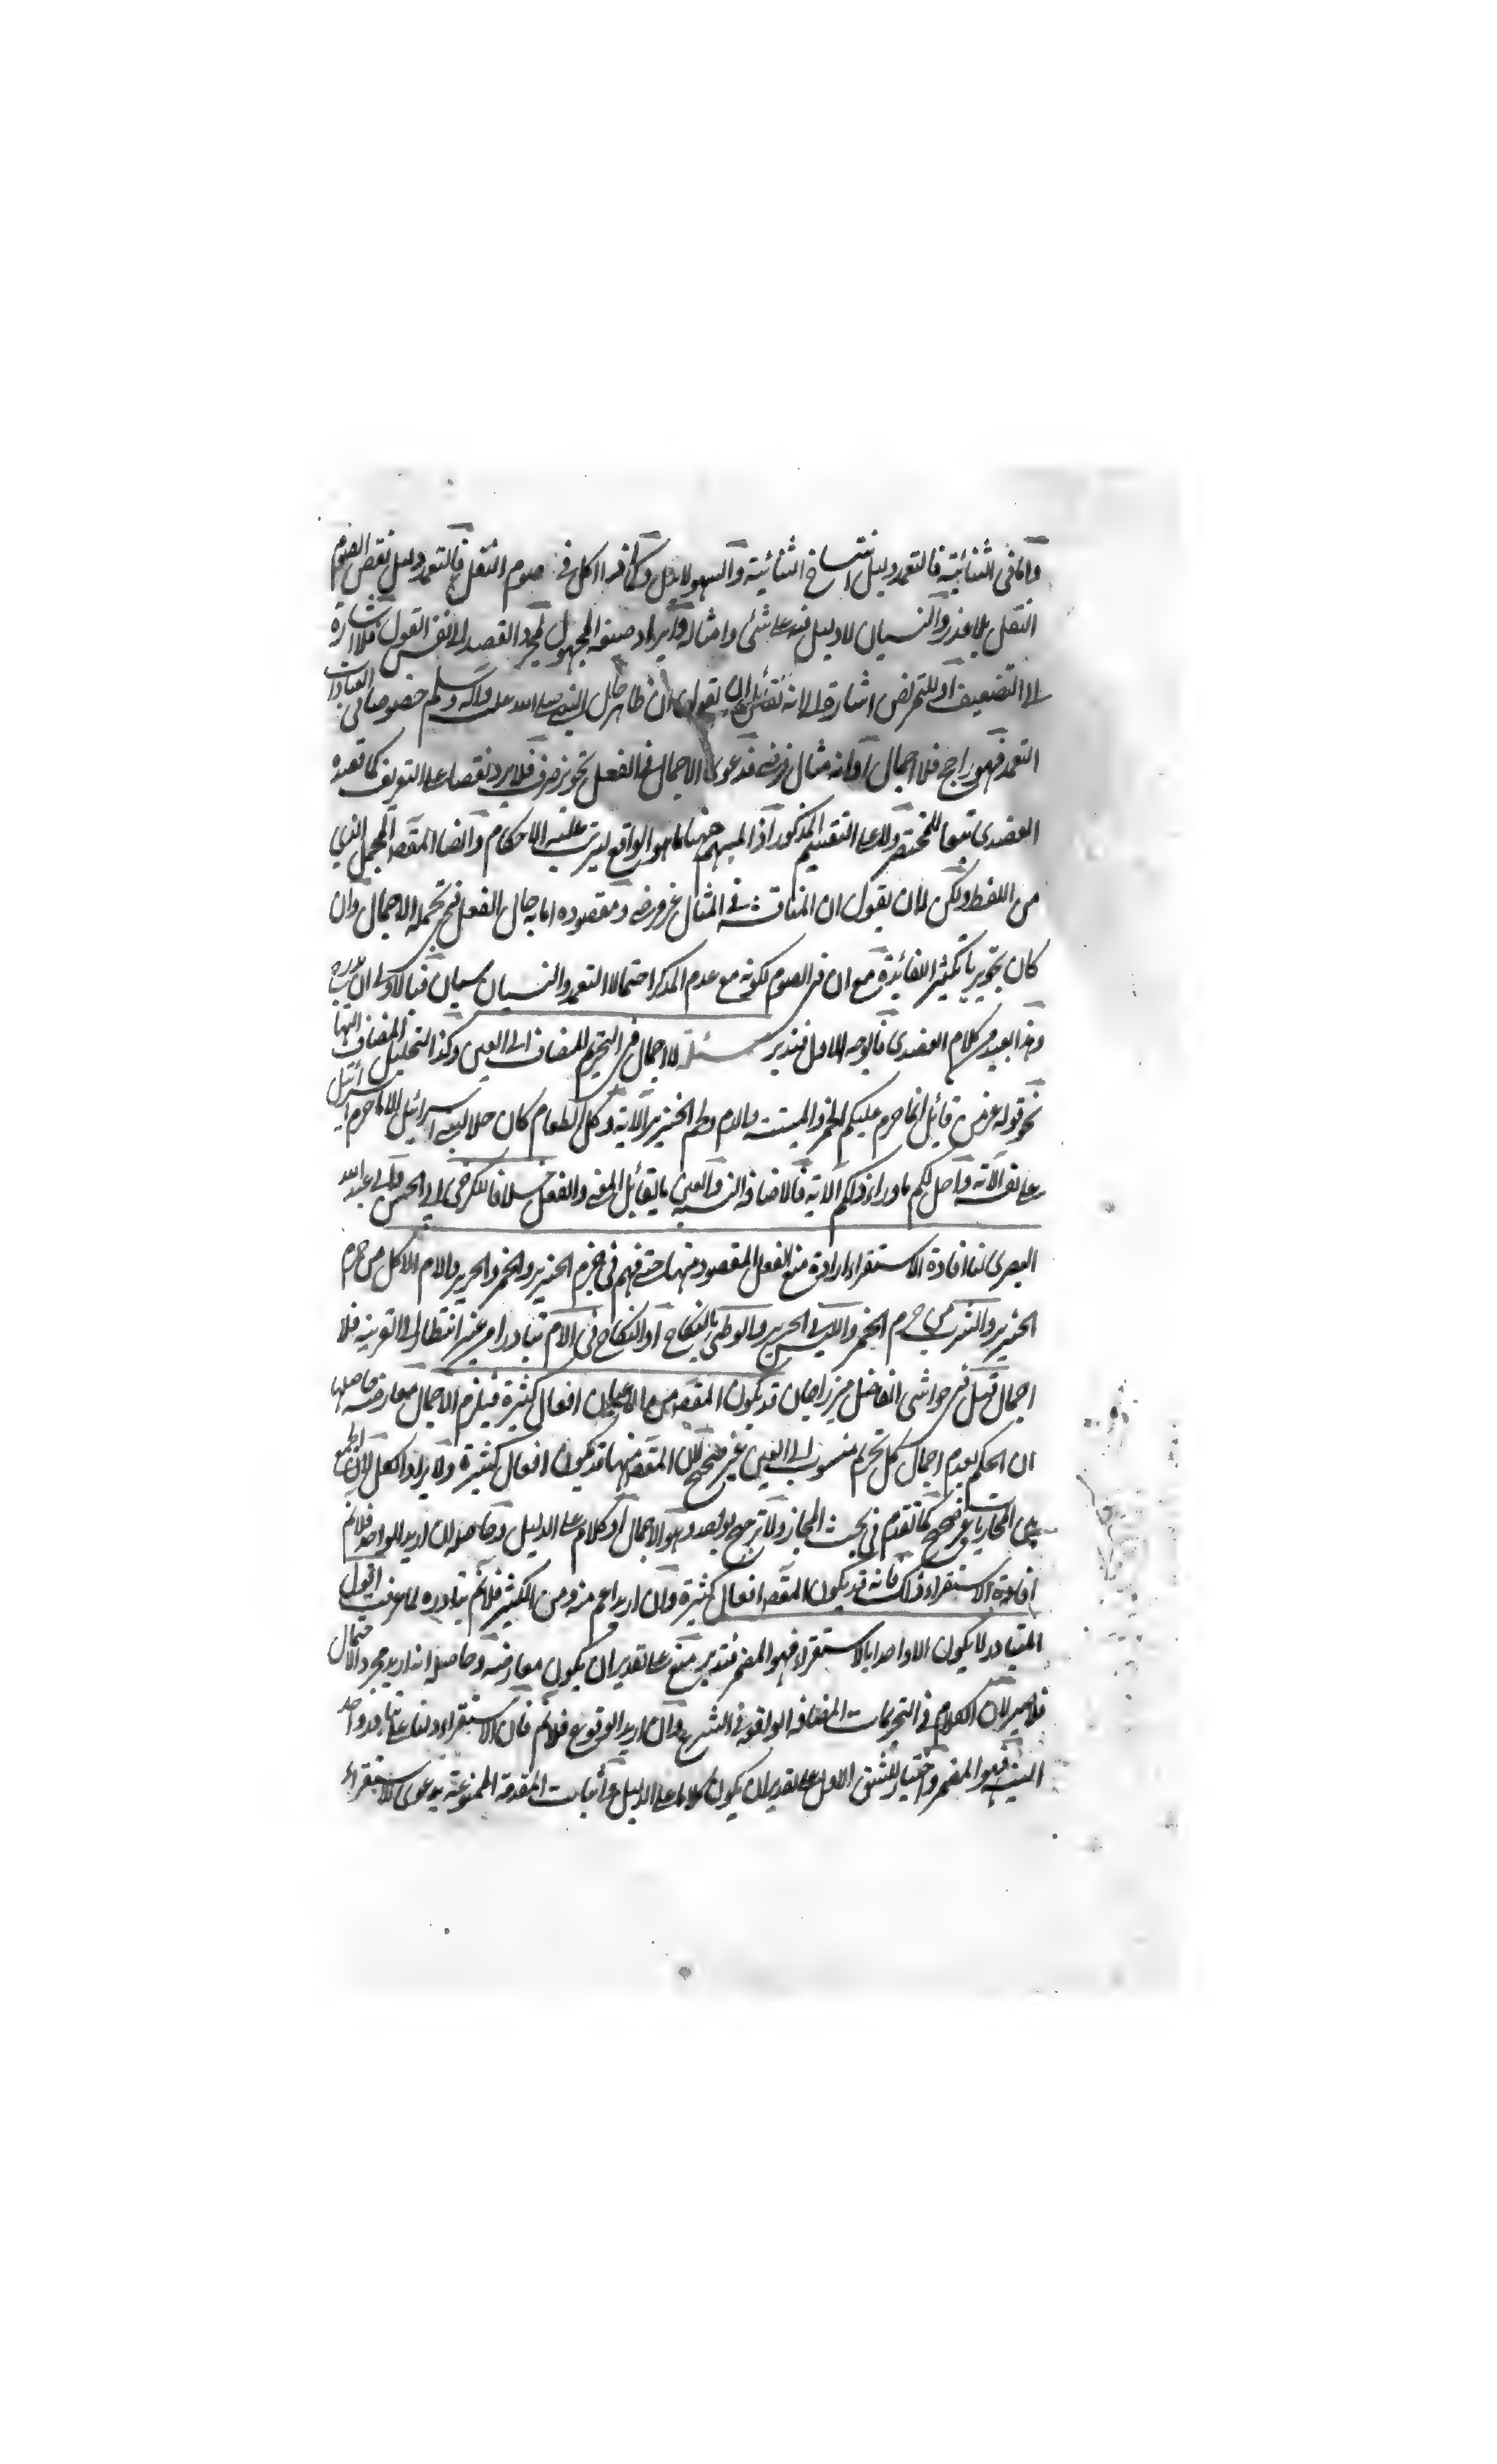 واما في الثنائية فالتعمد دليل انتساخ الثنائية والسهو لا يدل وكما قرا اكل في صوم النفل فالتعمد دليل نقض الصوم
النفل بلا عذر والنسيان لا دليل فيه على شئ وامثاله وايراد صيغة المجهول لمجرد القصد الى نفس القول فلا اشارة
الى التضعيف او للتمريض اشارة الى انه لقائل ان يقول ان ظاهر حال النبي صلى الله عليه وآله وسلم خصوصا في العبادات
التعمد فهو راجح فلا اجمال او انه مثال فدعوى الاجمال في الفعل تجويز صرف فلا يرد نقضا على التعريف كما
العضدي تبعا للمختصر ولا على التقسيم المذكور اذ المبهم ههنا ما هو الواقع ليترتب عليه الاحكام وايضا المقصود المجمل الذي
من اللفظ ولكن له ان يقول ان المناقشة في المثال غير مرضية ومقصوده ابانة حال الفعل في تحمله الاجمال وان
كان تجويزيا تكثيرا للفائدة مع ان في الصوم لكونه مع عدم المذكر احتمالا التعمد والنسيان سيان فالاولى ان
وهذا بعيد من كلام العضدي فالوجه الاول فتدبر مسئلة لا اجمال في التحريم المضاف الى العين وكذا التحليل المضاف اليها
نحو قوله عز من قائل انما حرم عليكم الميتة والدم ولحم الخنزير الآية وكل الطعام كان حلا لبني اسرائيل الا ما حرم اسرائيل
على نفسه الآية واحل لكم ما وراء ذلكم الآية فالاضافة النسبة والعين ما يقابل المعنى والفعل خلافا للكرخي وابي الحسين وابي عبد الله
البصري لنا افادة الاستقراء ارادة منع الفعل المقصود منها حتى فهم في حرم الخنزير والخمر والحرير والام الاكل من حرم
الخنزير والشرب من حرم الخمر واللبس في الحرير والوطي بالنكاح او النكاح في الام تبادرا من غير انتظار الى القرينة فلا
اجمال قيل في حواشي الفاضل ميرزاجان قد يكون المقصود من الاعيان افعال كثيرة فيلزم الاجمال معارضة حاصلها
ان الحكم بعدم اجمال كل تحريم منسوب الى العين غير صحيح لان المقصود منها قد يكون افعال كثيرة ولا يراد الكل لان الجمع
بين المجازيات غير صحيح كما تقدم في بحث المجاز ولا ترجيح لبعض وهو الاجمال او كلام على الدليل وحاصله ان اريد الواحد فلا نم
افادة الاستقراء ذلك فانه قد يكون المقصود افعال كثيرة وان اريد اعم منه ومن الكثير فلا نم تبادره لما عرفت اقول
المتبادر لا يكون الا واحدا بالاستقراء فهو المضمر فتدبر منع على تقدير ان يكون معارضة وحاصله انه اريد مجرد الاحتمال
فلا يضر لان الكلام في التحريمات المضافة الواقعة في الشرع وان اريد الوقوع فلا نم فان الاستقراء دلنا على تبادر واحد
اليه فهو المضمر واختيار للشق الاول على تقدير ان يكون كلاما على الدليل واثبات المقدمة الممنوعة بدعوى الاستقراء